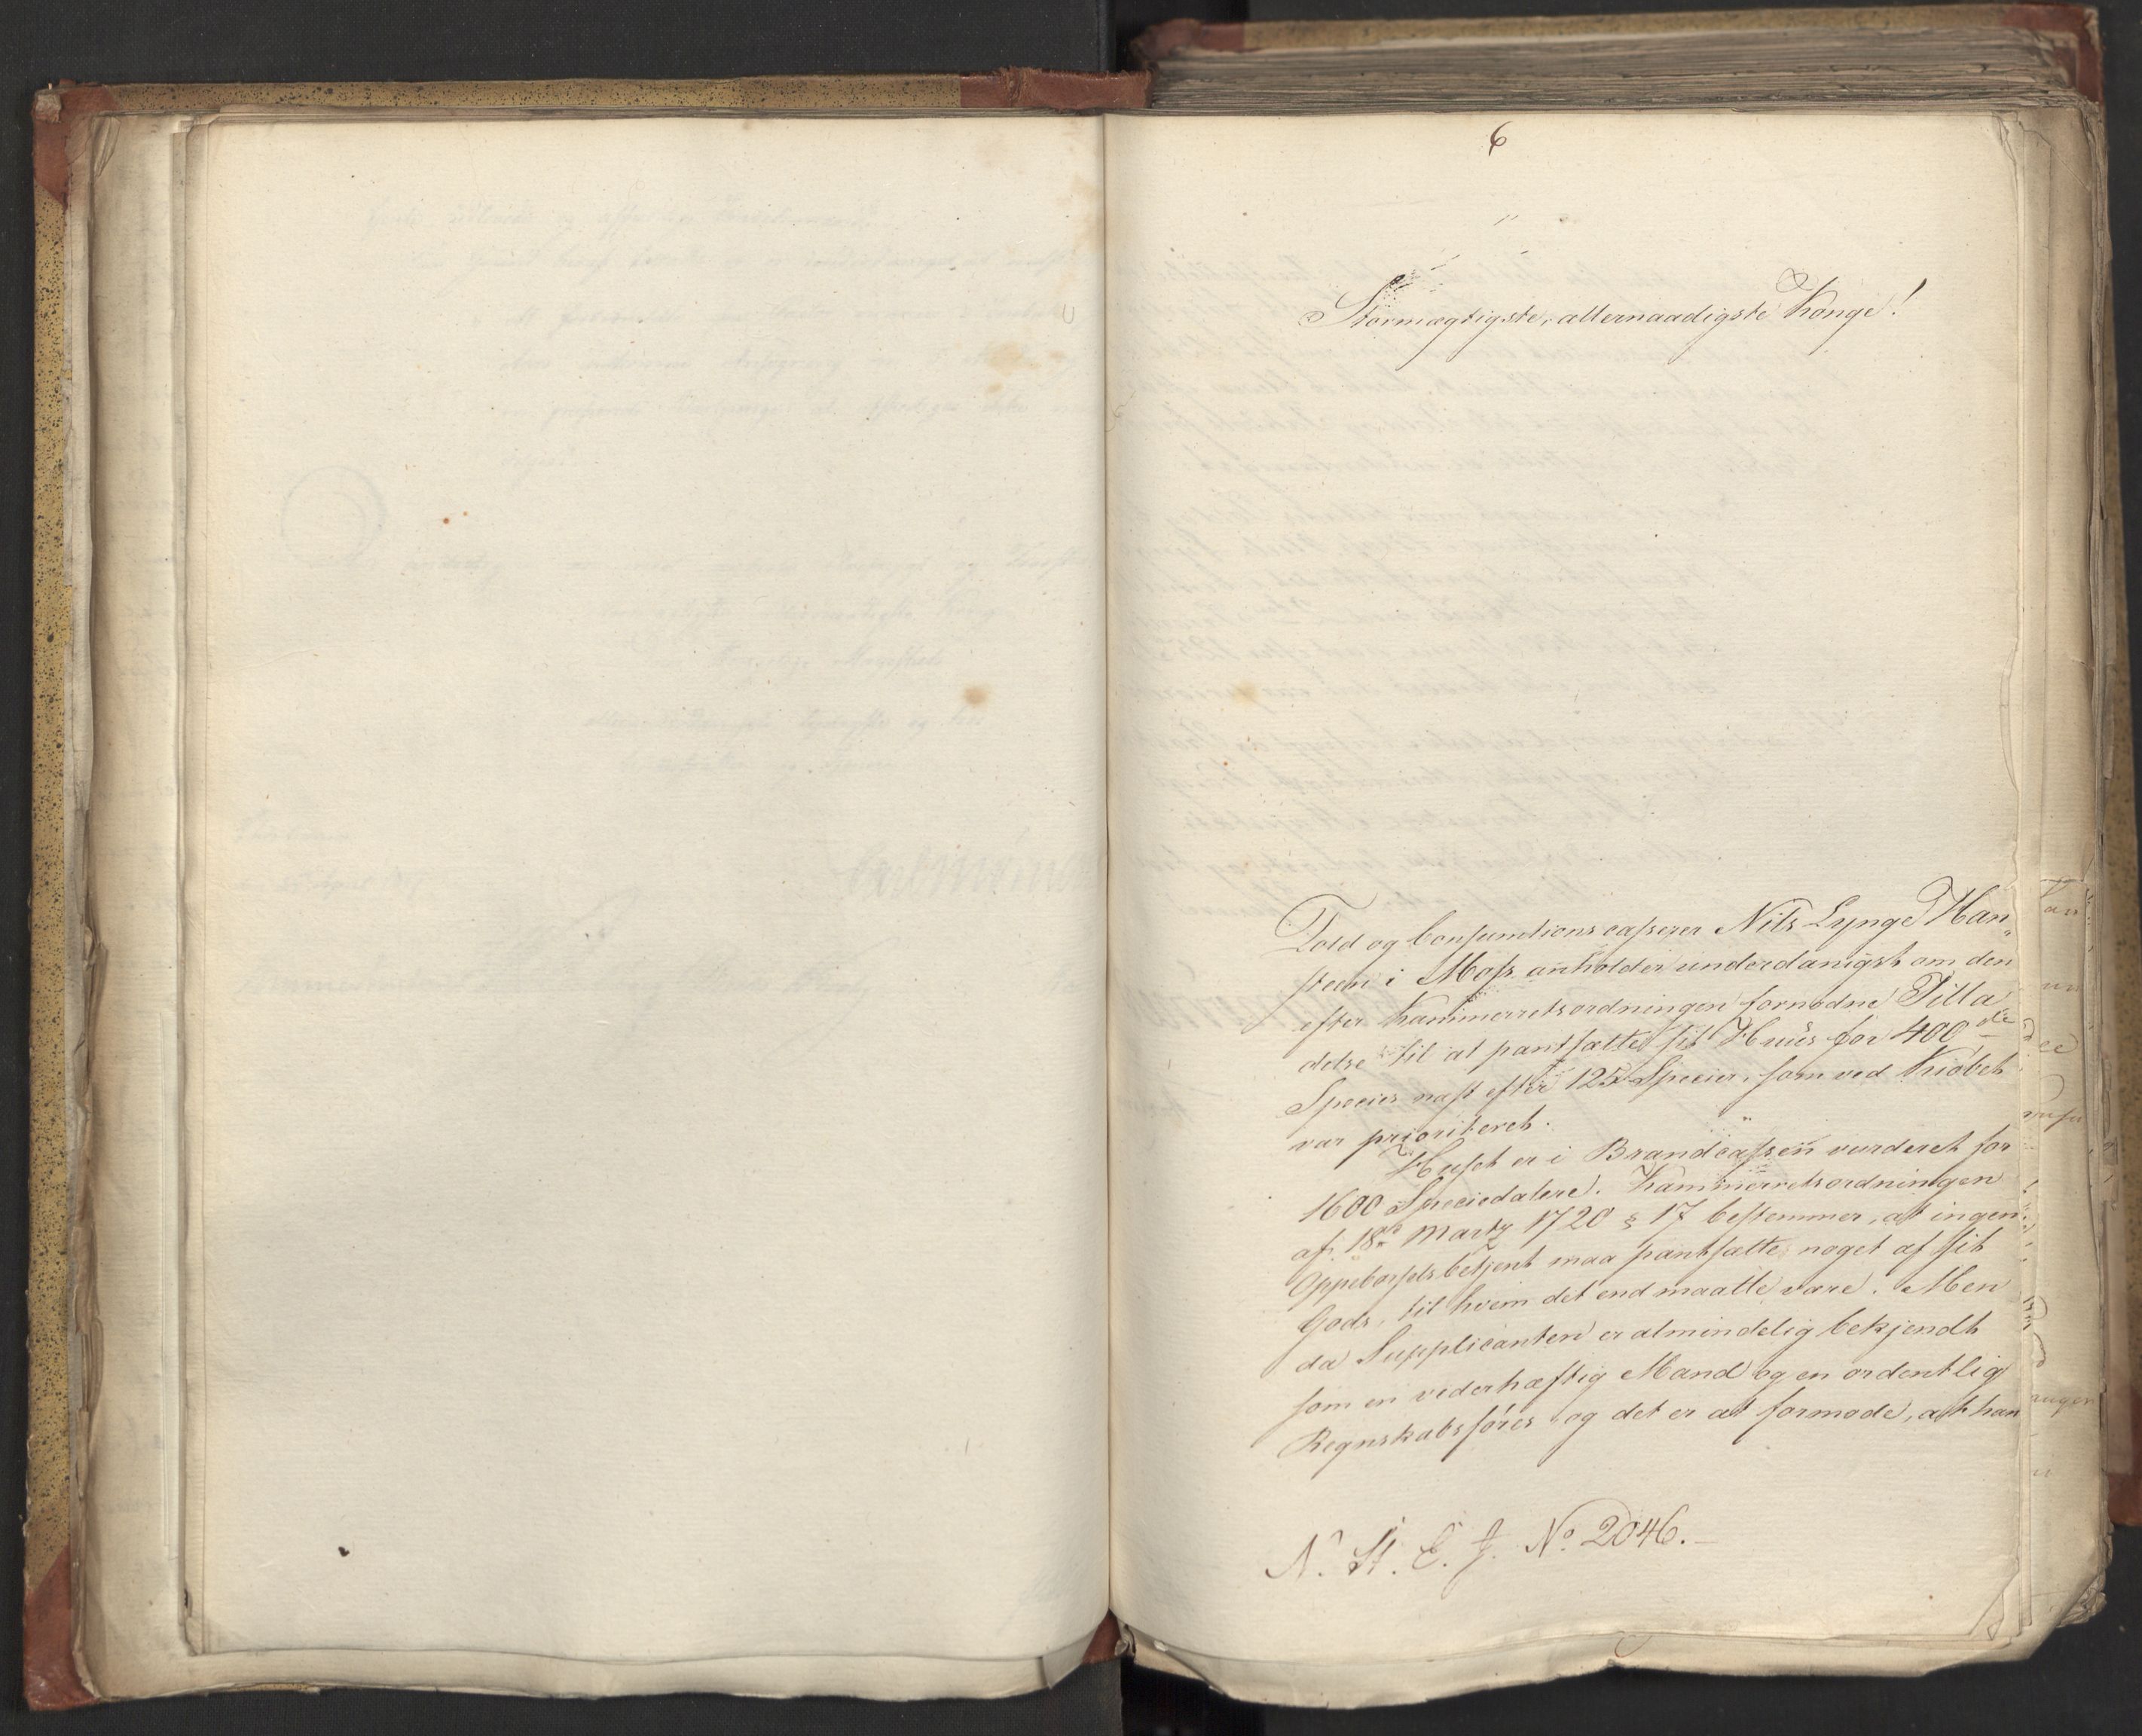 6
Stormægtigste, allernaadigste Konge!
Told og Consumtionscasserer Nils Lynge Han„
steen i Moss anholder underdanigst om den
efter Kammerretsordningen fornødne Tilla„
delse til at pantsætte sit Huus for 400 de
Species næst efter 125 Species, som ved Kiøbet
var prioriteret.
Huset er i Brandcassen vurderet for
1600 Speciedalere. Kammerretsordningen
af 18de Martz 1720 § 17 bestemmer, at ingen
Oppebørselsbetjent maa pantsætte noget af sit
Gods, til hvem det end maatte være. Men
da Supplicanten er almindelig bekjendt
som en vederhæftig Mand og en ordentlig
Regnskabsfører og det er at formode, at han
N. St. E. J. No. 2046.